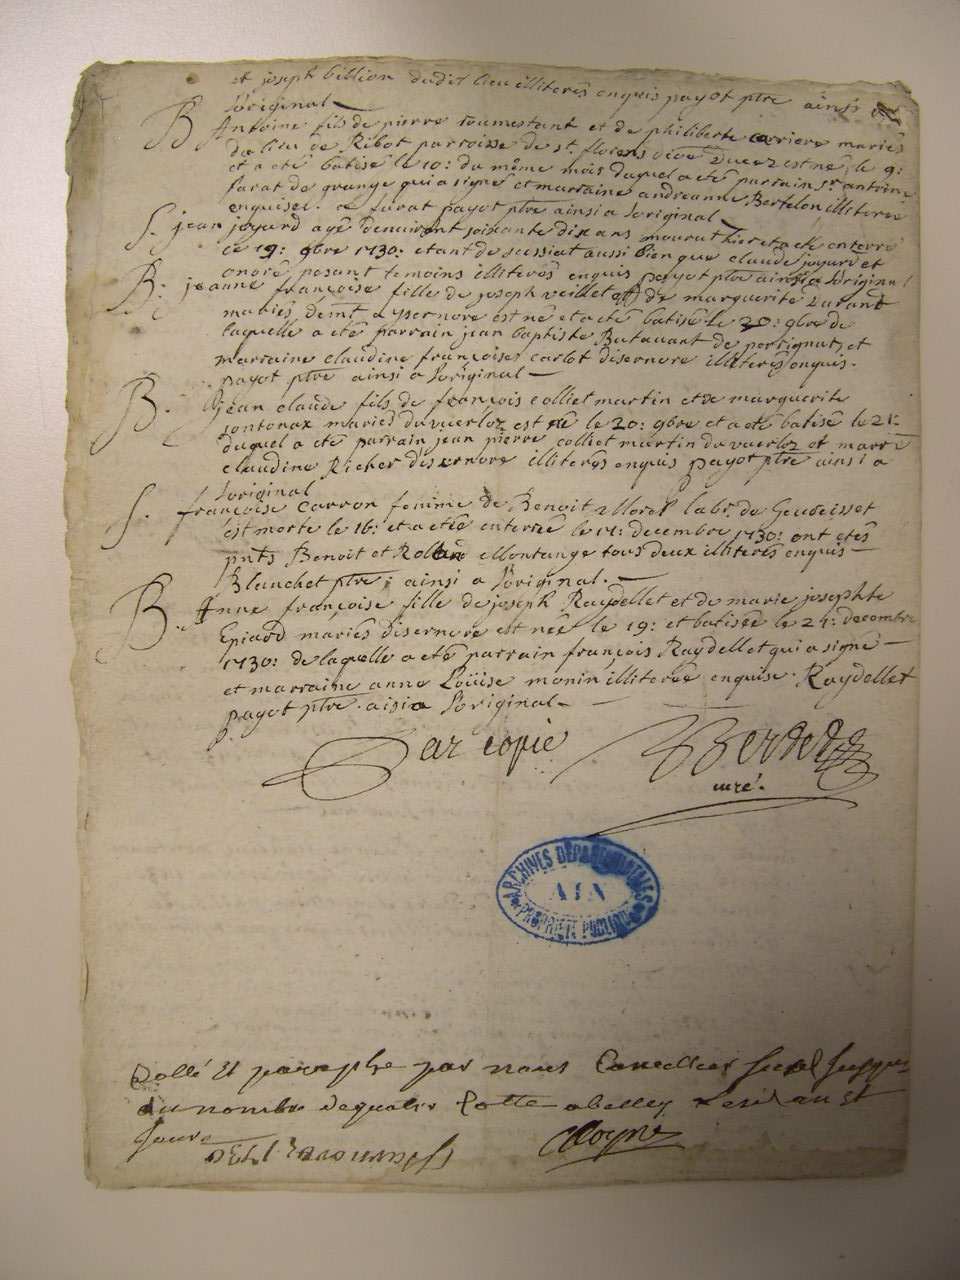 et joseph billion dudit lieu illiterés enquis payot ptre ainsi a
l'original
B Antoine fils de pierre tournestant et de philiberte carriere mariés
du lieu de Ribot parroisse de st florens est né le 9:
et a eté batisé le 10: du même mois duquel a eté parrain sr antoine
furat de grange qui a signé et marraine andreanne Bertelon illiterée
enquise. a furat payot ptre ainsi a l'original
S. jean joyard agé denuiront soixante dix ans mourut hier et a eté enterré
ce 19: 9bre 1730: etant de sessiat aussi bien que claude joyard et
onoré posant temoins illiterés enquis payot ptre ainsi a l'original
B. jeanne françoise fille de joseph veillet et de marguerite
mariés demt a ysernore est né et a eté batisé le 20: 9bre de
laquelle a eté parrain jean baptiste Batauant de portignat, et
marraine claudine françoise carlot disernore illiterés enquis.
payot ptre ainsi a l'original
B. jean claude fils de françois colliet martin et de marguerite
sontonax mariés du vuerloz est né le 20: 9bre et a eté batisé le 21:
duquel a eté parrain jean pierre colliet martin du vuerloz et marre
claudine Richer disernore illiterés enquis payot ptre ainsi a
l'original
S. françoise carron femme de Benoit Morel labr. de Geuueisset
est morte le 16: et a eté enterrée le 17: decembre 1730: ont etés
pnts Benoit et Rolland Montange tous deux illiterés enquis
Blanchet ptre; ainsi a l'original.
B. Anne françoise fille de joseph Raydellet et de marie josephte
Epiard mariés disernore est née le 19: et batisée le 21: decembre
1730: de laquelle a eté parrain françois Raydellet qui a signé
et marraine anne Loüise monin illiterée enquise. Raydellet
payot ptre. aisi a l'original
Par copie
curé.
ARCHIVES DEPARTEMENTALES
AIN
PROPRIETE PUBLIQUE
Cotté Et paraphe par nous
du nombre de quatre Cotte